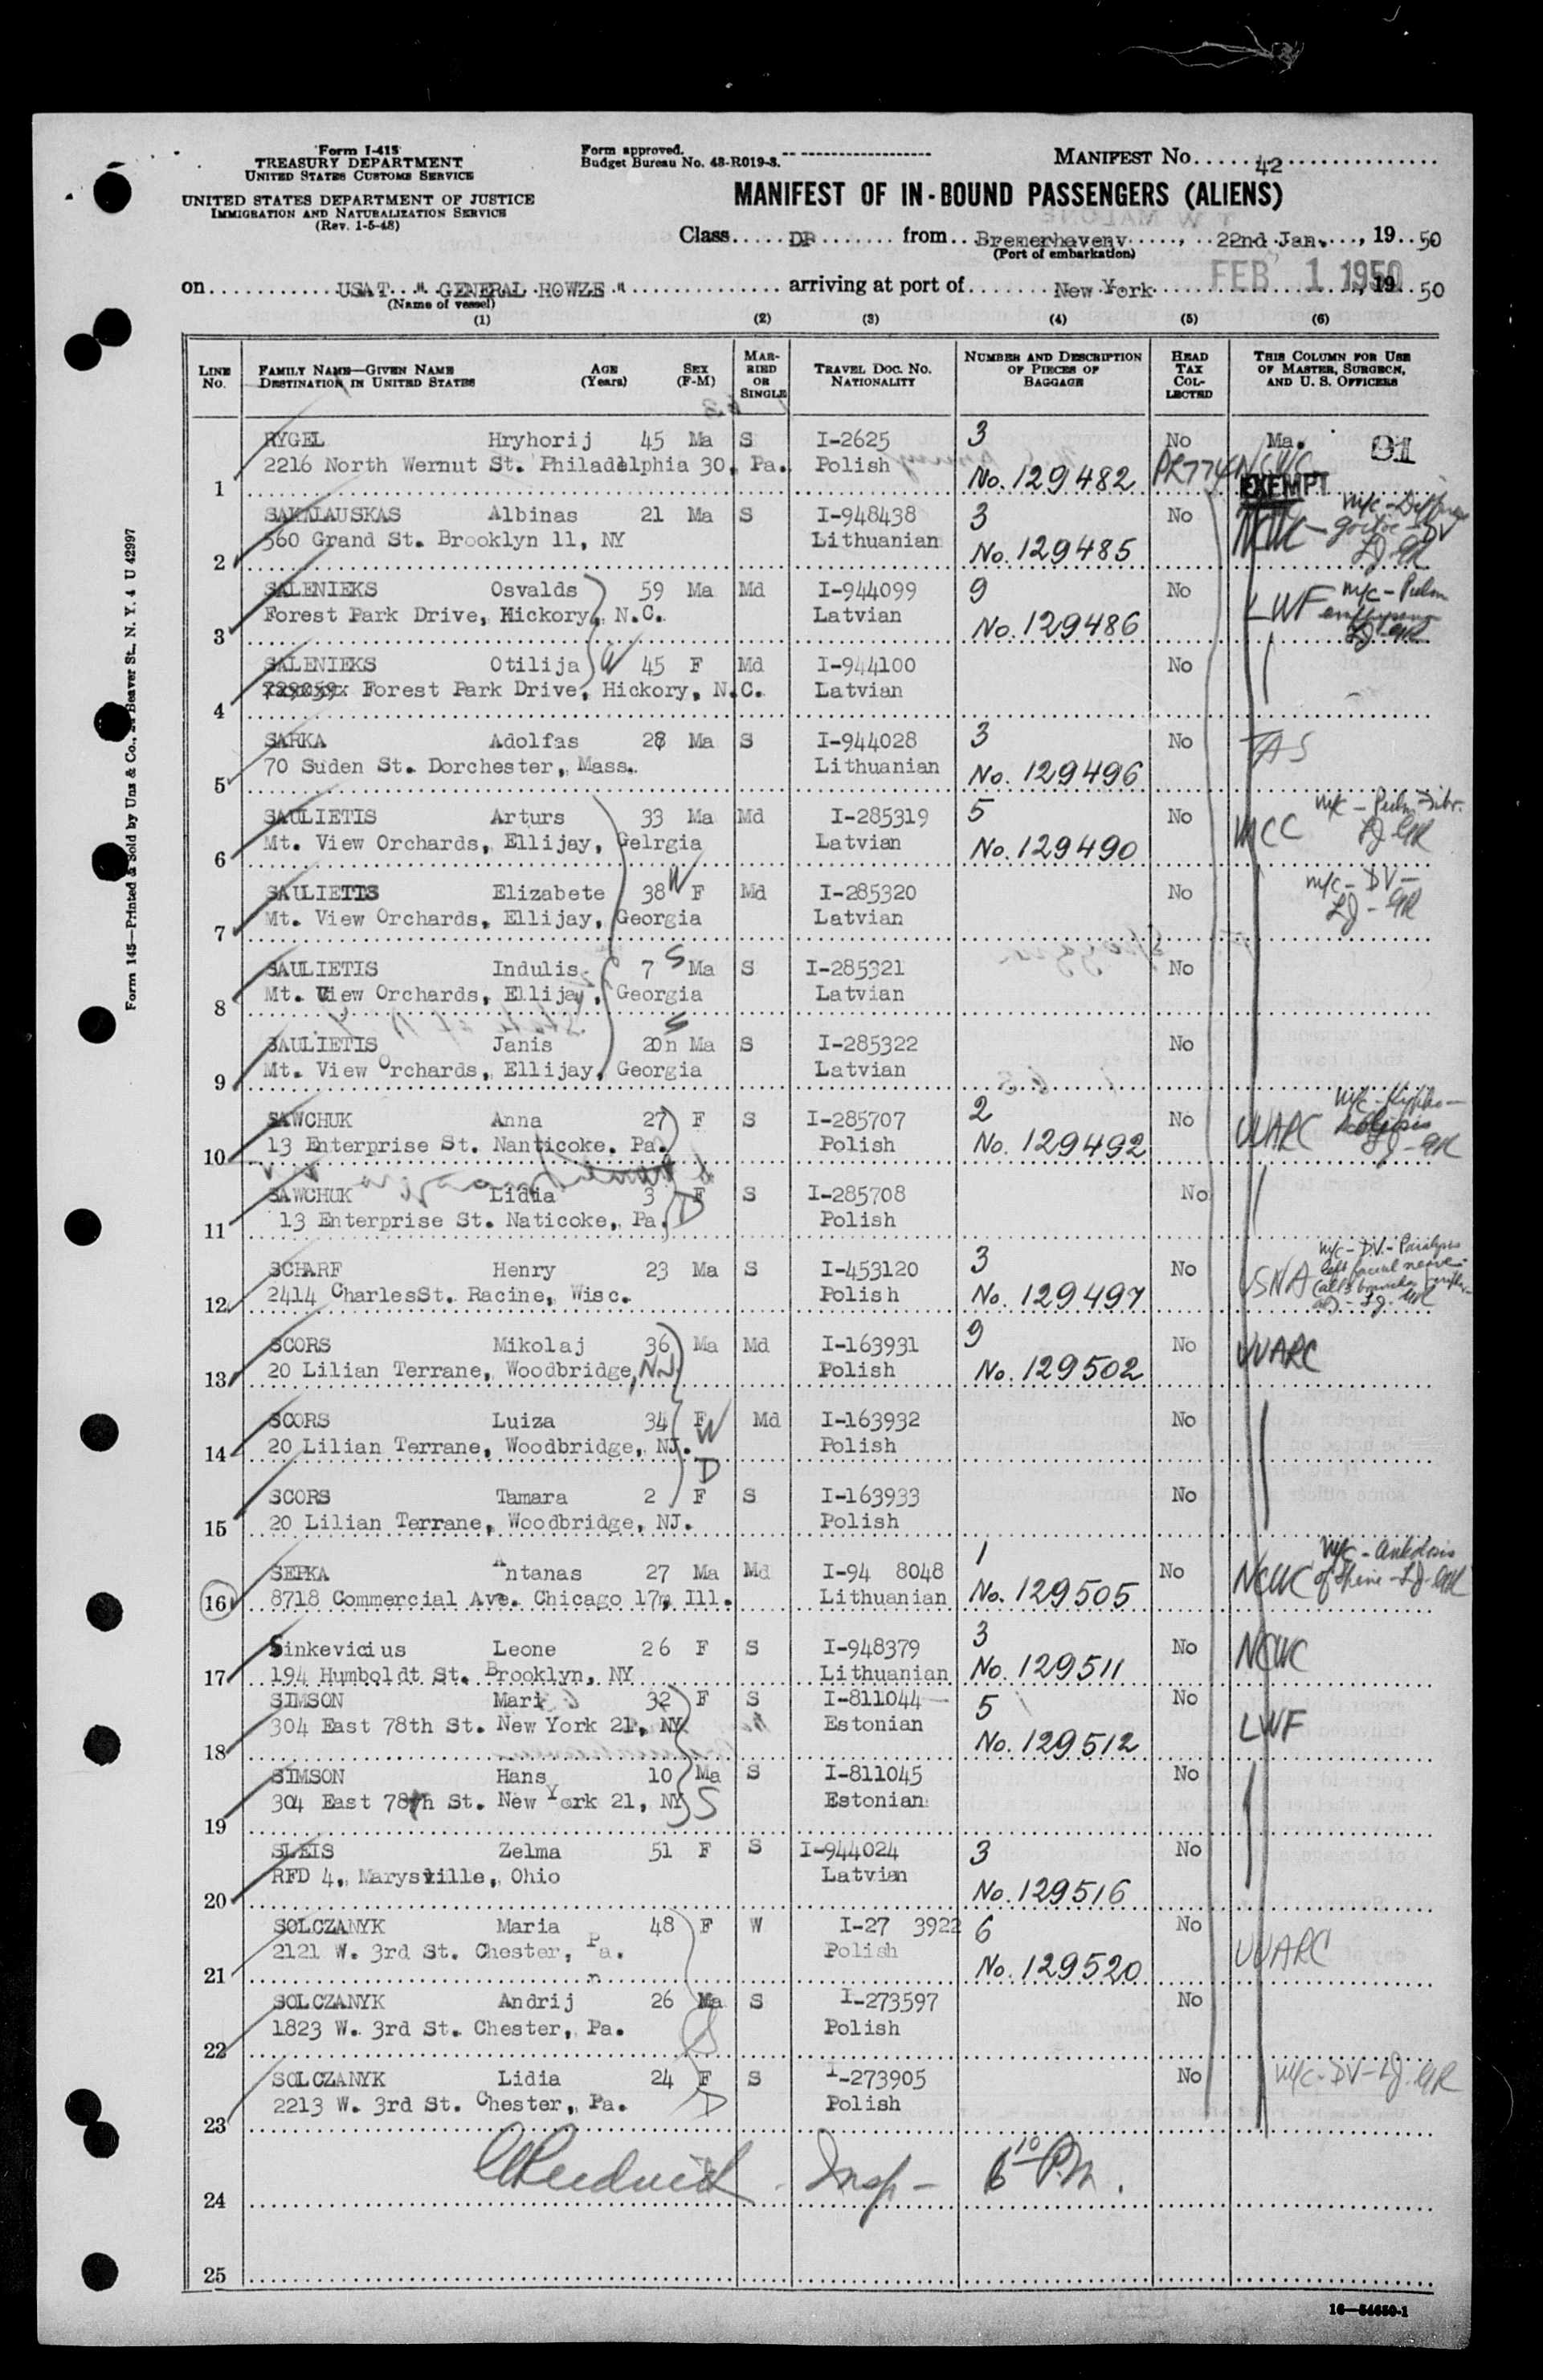 Form I-415
TREASURY DEPARTMENT
UNITED STATES CUSTOMS SERVICE
UNITED STATES DEPARTMENT OF JUSTICE
IMMIGRATION AND NATURALIZATION SERVICE
(Rev. 1-5-48)
Form approved.
Budget Bureau No. 43-R019-3.
MANIFEST No. 42
MANIFEST OF IN-BOUND PASSENGERS (ALIENS)
Class DP from Bremerhavenv, 22nd Jan., 19 50
(Port of embarkation)
on USAT " GENERAL HOWZE " arriving at port of New York FEB 1 1950, 19 50
(Name of vessel)
(1) (2) (3) (4) (5) (6)
LINE No. FAMILY NAME—GIVEN NAME DESTINATION IN UNITED STATES AGE (Years) SEX (F-M) MARRIED OR SINGLE TRAVEL DOC. NO. NATIONALITY NUMBER AND DESCRIPTION OF PIECES OF BAGGAGE HEAD TAX COLLECTED THIS COLUMN FOR USE OF MASTER, SURGEON, AND U. S. OFFICERS
RYGEL Hryhorij 45 Ma S I-2625 3 No Ma. 91
1 2216 North Wernut St. Philadelphia 30, Pa. Polish No. 129482 NCWC
EXEMPT
SAKALAUSKAS Albinas 21 Ma S I-948438 3 No m/c - Diffuse
2 560 Grand St. Brooklyn 11, NY Lithuanian No. 129485 NCWC - goitre - DV
SALENIEKS Osvalds 59 Ma Md I-944099 9 No m/c - Pulm
3 Forest Park Drive, Hickory, N.C. Latvian No. 129486 LWF
SALENIEKS Otilija W 45 F Md I-944100 No
4 Forest Park Drive, Hickory, N.C. Latvian
SARKA Adolfas 28 Ma S I-944028 3 No
5 70 Suden St. Dorchester, Mass. Lithuanian No. 129496
SAULIETIS Arturs 33 Ma Md I-285319 5 No m/c - Pulm. Fibr.
6 Mt. View Orchards, Ellijay, Gelrgia Latvian No. 129490
SAULIETIS Elizabete 38 W F Md I-285320 No m/c - DV -
7 Mt. View Orchards, Ellijay, Georgia Latvian
SAULIETIS Indulis 7 S Ma S I-285321 No
8 Mt. View Orchards, Ellijay, Georgia Latvian
SAULIETIS Janis 20n S Ma S I-285322 No
9 Mt. View Orchards, Ellijay, Georgia Latvian
SAWCHUK Anna 27 F S I-285707 2 No
10 13 Enterprise St. Nanticoke. Pa. Polish No. 129492 UUARC
SAWCHUK Lidia 3 F S I-285708 No
11 13 Enterprise St. Naticoke, Pa. D Polish
SCHARF Henry 23 Ma S I-453120 3 No m/c - D.V. - Paralysis
12 2414 CharlesSt. Racine, Wisc. Polish No. 129497 left facial nerve
SCORS Mikolaj 36 Ma Md I-163931 9 No
13 20 Lilian Terrane, Woodbridge, NJ Polish No. 129502 UUARC
SCORS Luiza 34 F W Md I-163932 No
14 20 Lilian Terrane, Woodbridge, NJ. Polish
D
SCORS Tamara 2 F S I-163933 No
15 20 Lilian Terrane, Woodbridge, NJ. Polish
SEPKA Antanas 27 Ma Md I-94 8048 1 No
16 8718 Commercial Ave. Chicago 17, Ill. Lithuanian No. 129505 NCWC of Spine
Sinkevicius Leone 26 F S I-948379 3 No
17 194 Humboldt St. Brooklyn, NY Lithuanian No. 129511 NCWC
SIMSON Mari 32 F S I-811044 5 No
18 304 East 78th St. New York 21, NY Estonian No. 129512 LWF
SIMSON Hans 10 Ma S I-811045 No
19 304 East 78th St. New York 21, NY S Estonian
SLEIS Zelma 51 F S I-944024 3 No
20 RFD 4, Marysville, Ohio Latvian No. 129516
SOLCZANYK Maria 48 F W I-27 3922 6 No
21 2121 W. 3rd St. Chester, Pa. Polish No. 129520 UUARC
SOLCZANYK Andrij 26 Ma S I-273597 No
22 1823 W. 3rd St. Chester, Pa. S Polish
SOLCZANYK Lidia 24 F S I-273905 No m/c - DV -
23 2213 W. 3rd St. Chester, Pa. D Polish
24 Insp - 6 10 P.M.
25
16—54650-1